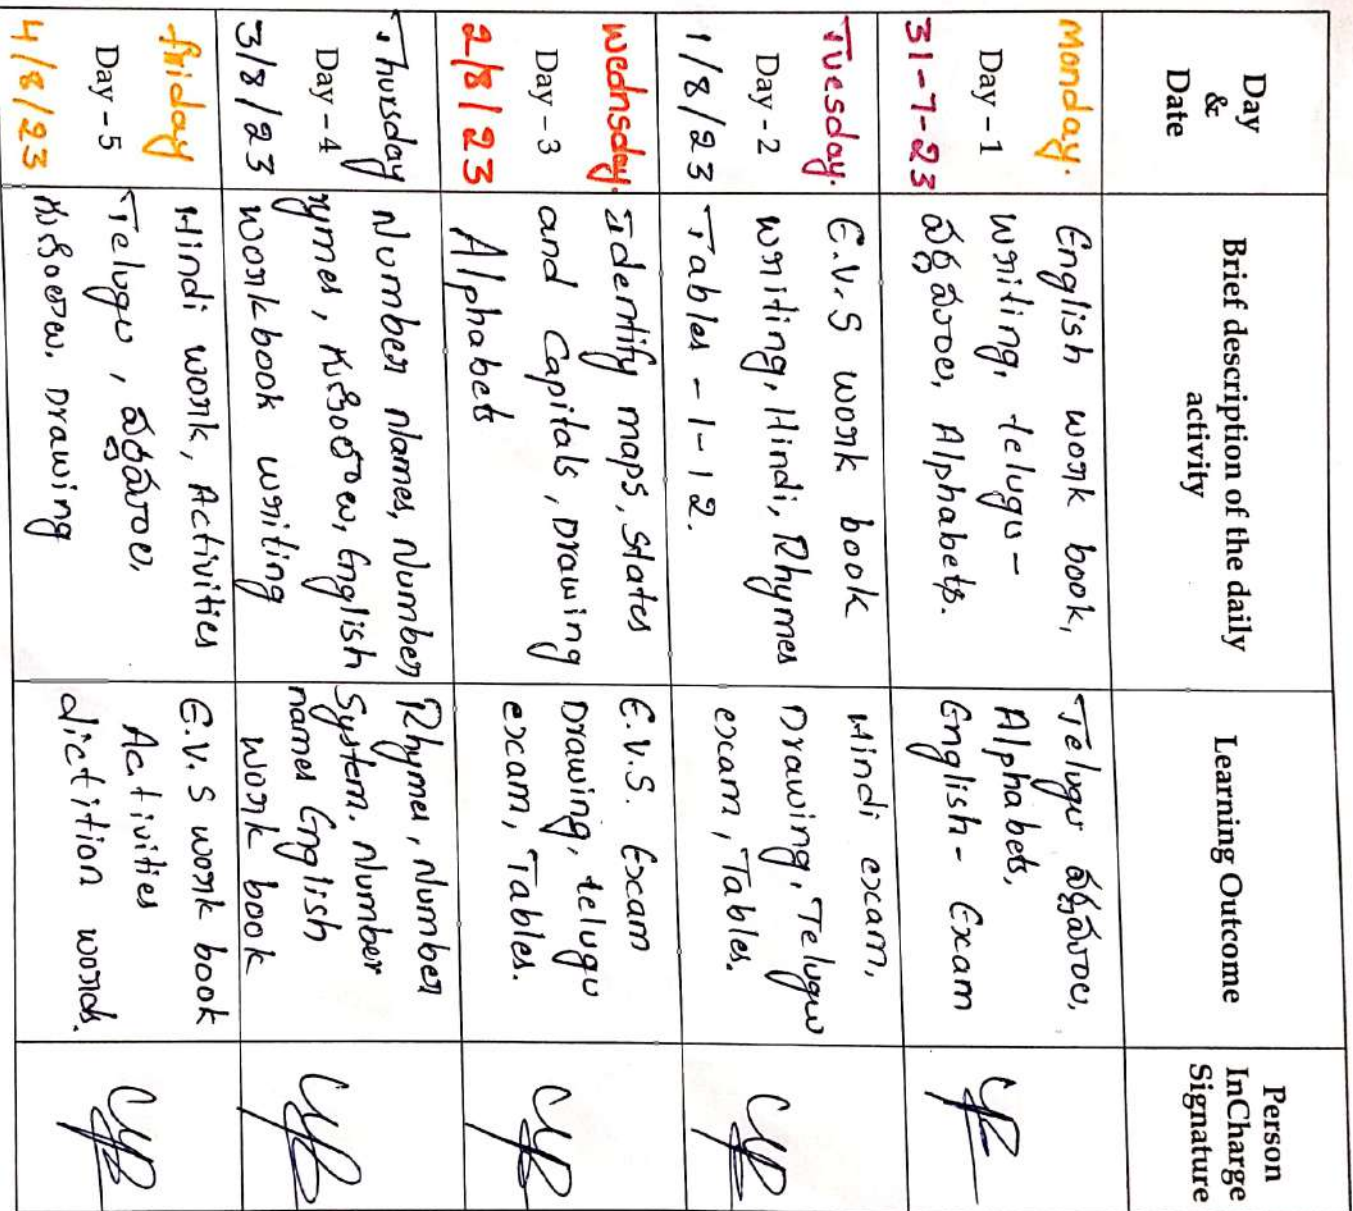 Day
&
Date
Brief description of the daily
activity
Learning Outcome
Person
InCharge
Signature
Monday.
Day - 1
31-7-23
English work book,
writing, telugu -
వర్ణమాల, Alphabets.
Telugu వర్ణమాల,
Alphabets,
English - Exam
Tuesday.
Day - 2
1/8/23
E.V.S work book
writing, Hindi, Rhymes
Tables - 1-12.
Hindi exam,
Drawing, Telugu
exam, Tables.
wednsday.
Day - 3
2/8/23
Identify maps, states
and Capitals, Drawing
Alphabets
E.V.S. Exam
Drawing, telugu
exam, Tables.
Thursday
Day - 4
3/8/23
Number names, Number
rymes, గుణింతాలు, English
workbook writing
Rhymes, number
System. Number
names English
work book
friday
Day - 5
4/8/23
Hindi work, Activities
Telugu, వర్ణమాల,
గుణింతాలు, Drawing
E.V.S work book
Activities
dictition words.